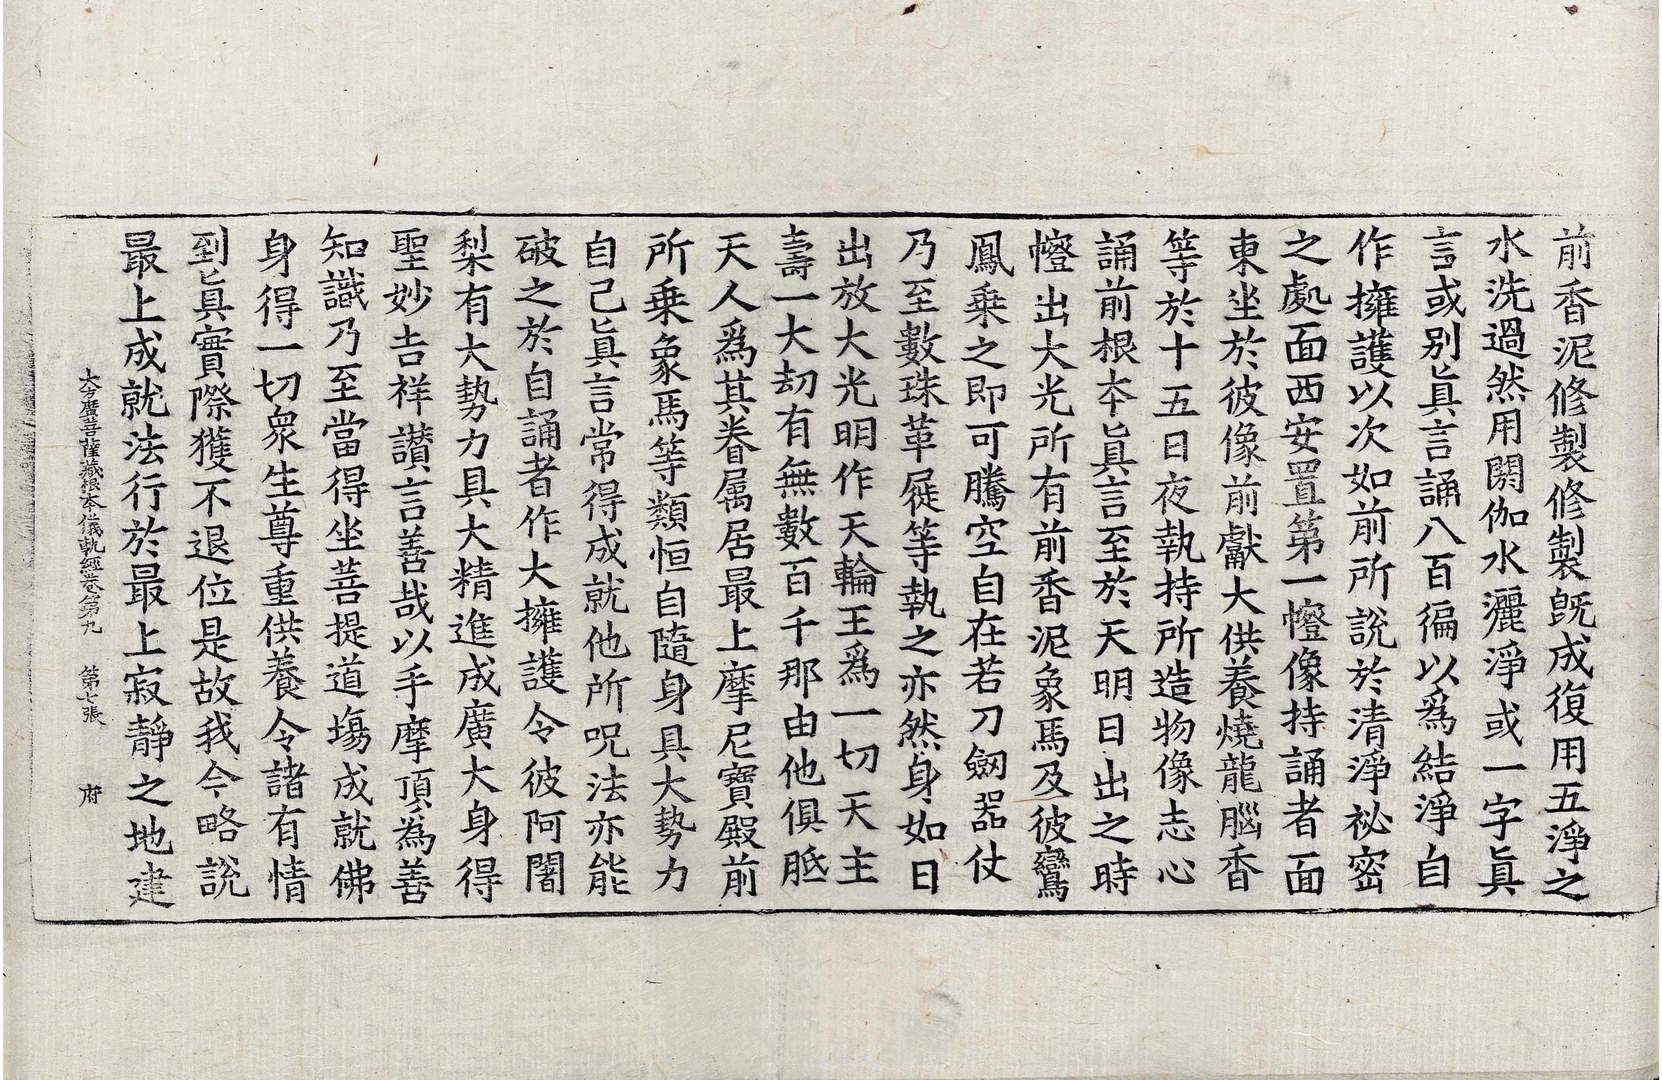 前香泥修製修製旣成復用五淨之
水洗過然用閼伽水灑淨或一字眞
言或別眞言誦八百徧以爲結淨自
作擁護以次如前所說於清淨祕密
之處面西安置第一㡧像持誦者面
東坐於彼像前獻大供養燒龍腦香
等於十五日夜執持所造物像志心
誦前根本眞言至於天明日出之時
㡧出大光所有前香泥象馬及彼鸞
鳳乗之即可騰空自在若刀劒器仗
乃至數珠革屣等執之亦然身如日
出放大光明作天輪王爲一切天主
壽一大劫有無數百千那由他俱胝
天人爲其眷属居最上摩尼寶殿前
所乗象馬等類恒自隨身具大勢力
自己眞言常得成就他所呪法亦能
破之於自誦者作大擁護令彼阿闍
梨有大勢力具大精進成廣大身得
聖妙吉祥讃言善哉以手摩頂為善
知識乃至當得坐菩提道場成就佛
身得一切衆生尊重供養令諸有情
到眞實際獲不退位是故我今略說
最上成就法行於最上寂靜之地建
大方廣菩薩藏根本儀軌經卷第九 第七張 府